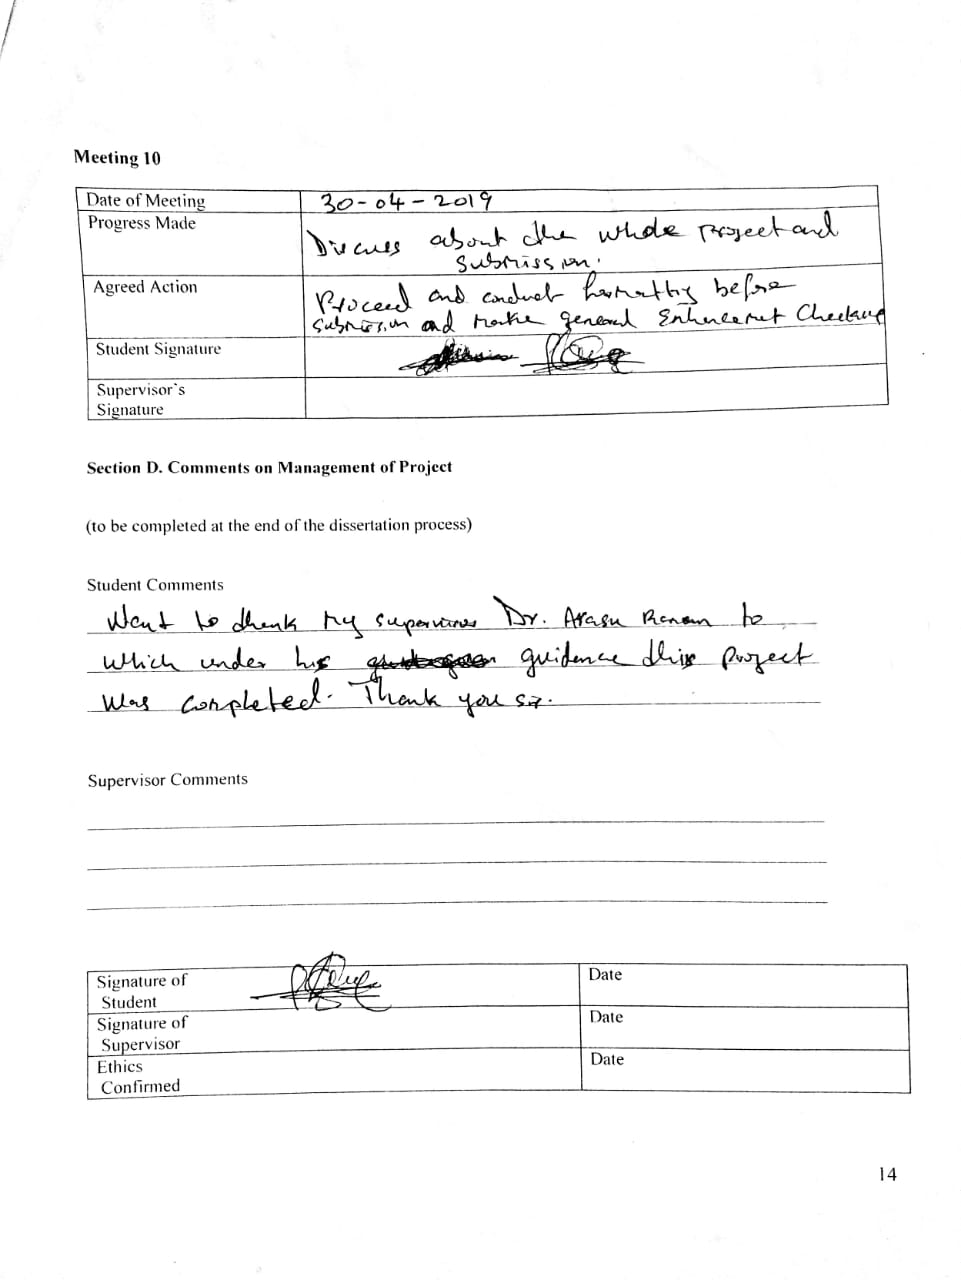 Meeting 10
Date of Meeting 30-04-2019
Progress Made
Discuss about the whole project and
Submission.
Agreed Action
Proceed and conduct formatting before
Submission and make general Enhancemet Checkup
Student Signature
Supervisor`s
Signature
Section D. Comments on Management of Project
(to be completed at the end of the dissertation process)
Student Comments
Want to thank my supervisor Dr. Arasu Raman to
which under his guidence this project
was completed. Thank you sir.
Supervisor Comments
Signature of
Student
Date
Signature of
Supervisor
Date
Ethics
Confirmed
Date
14